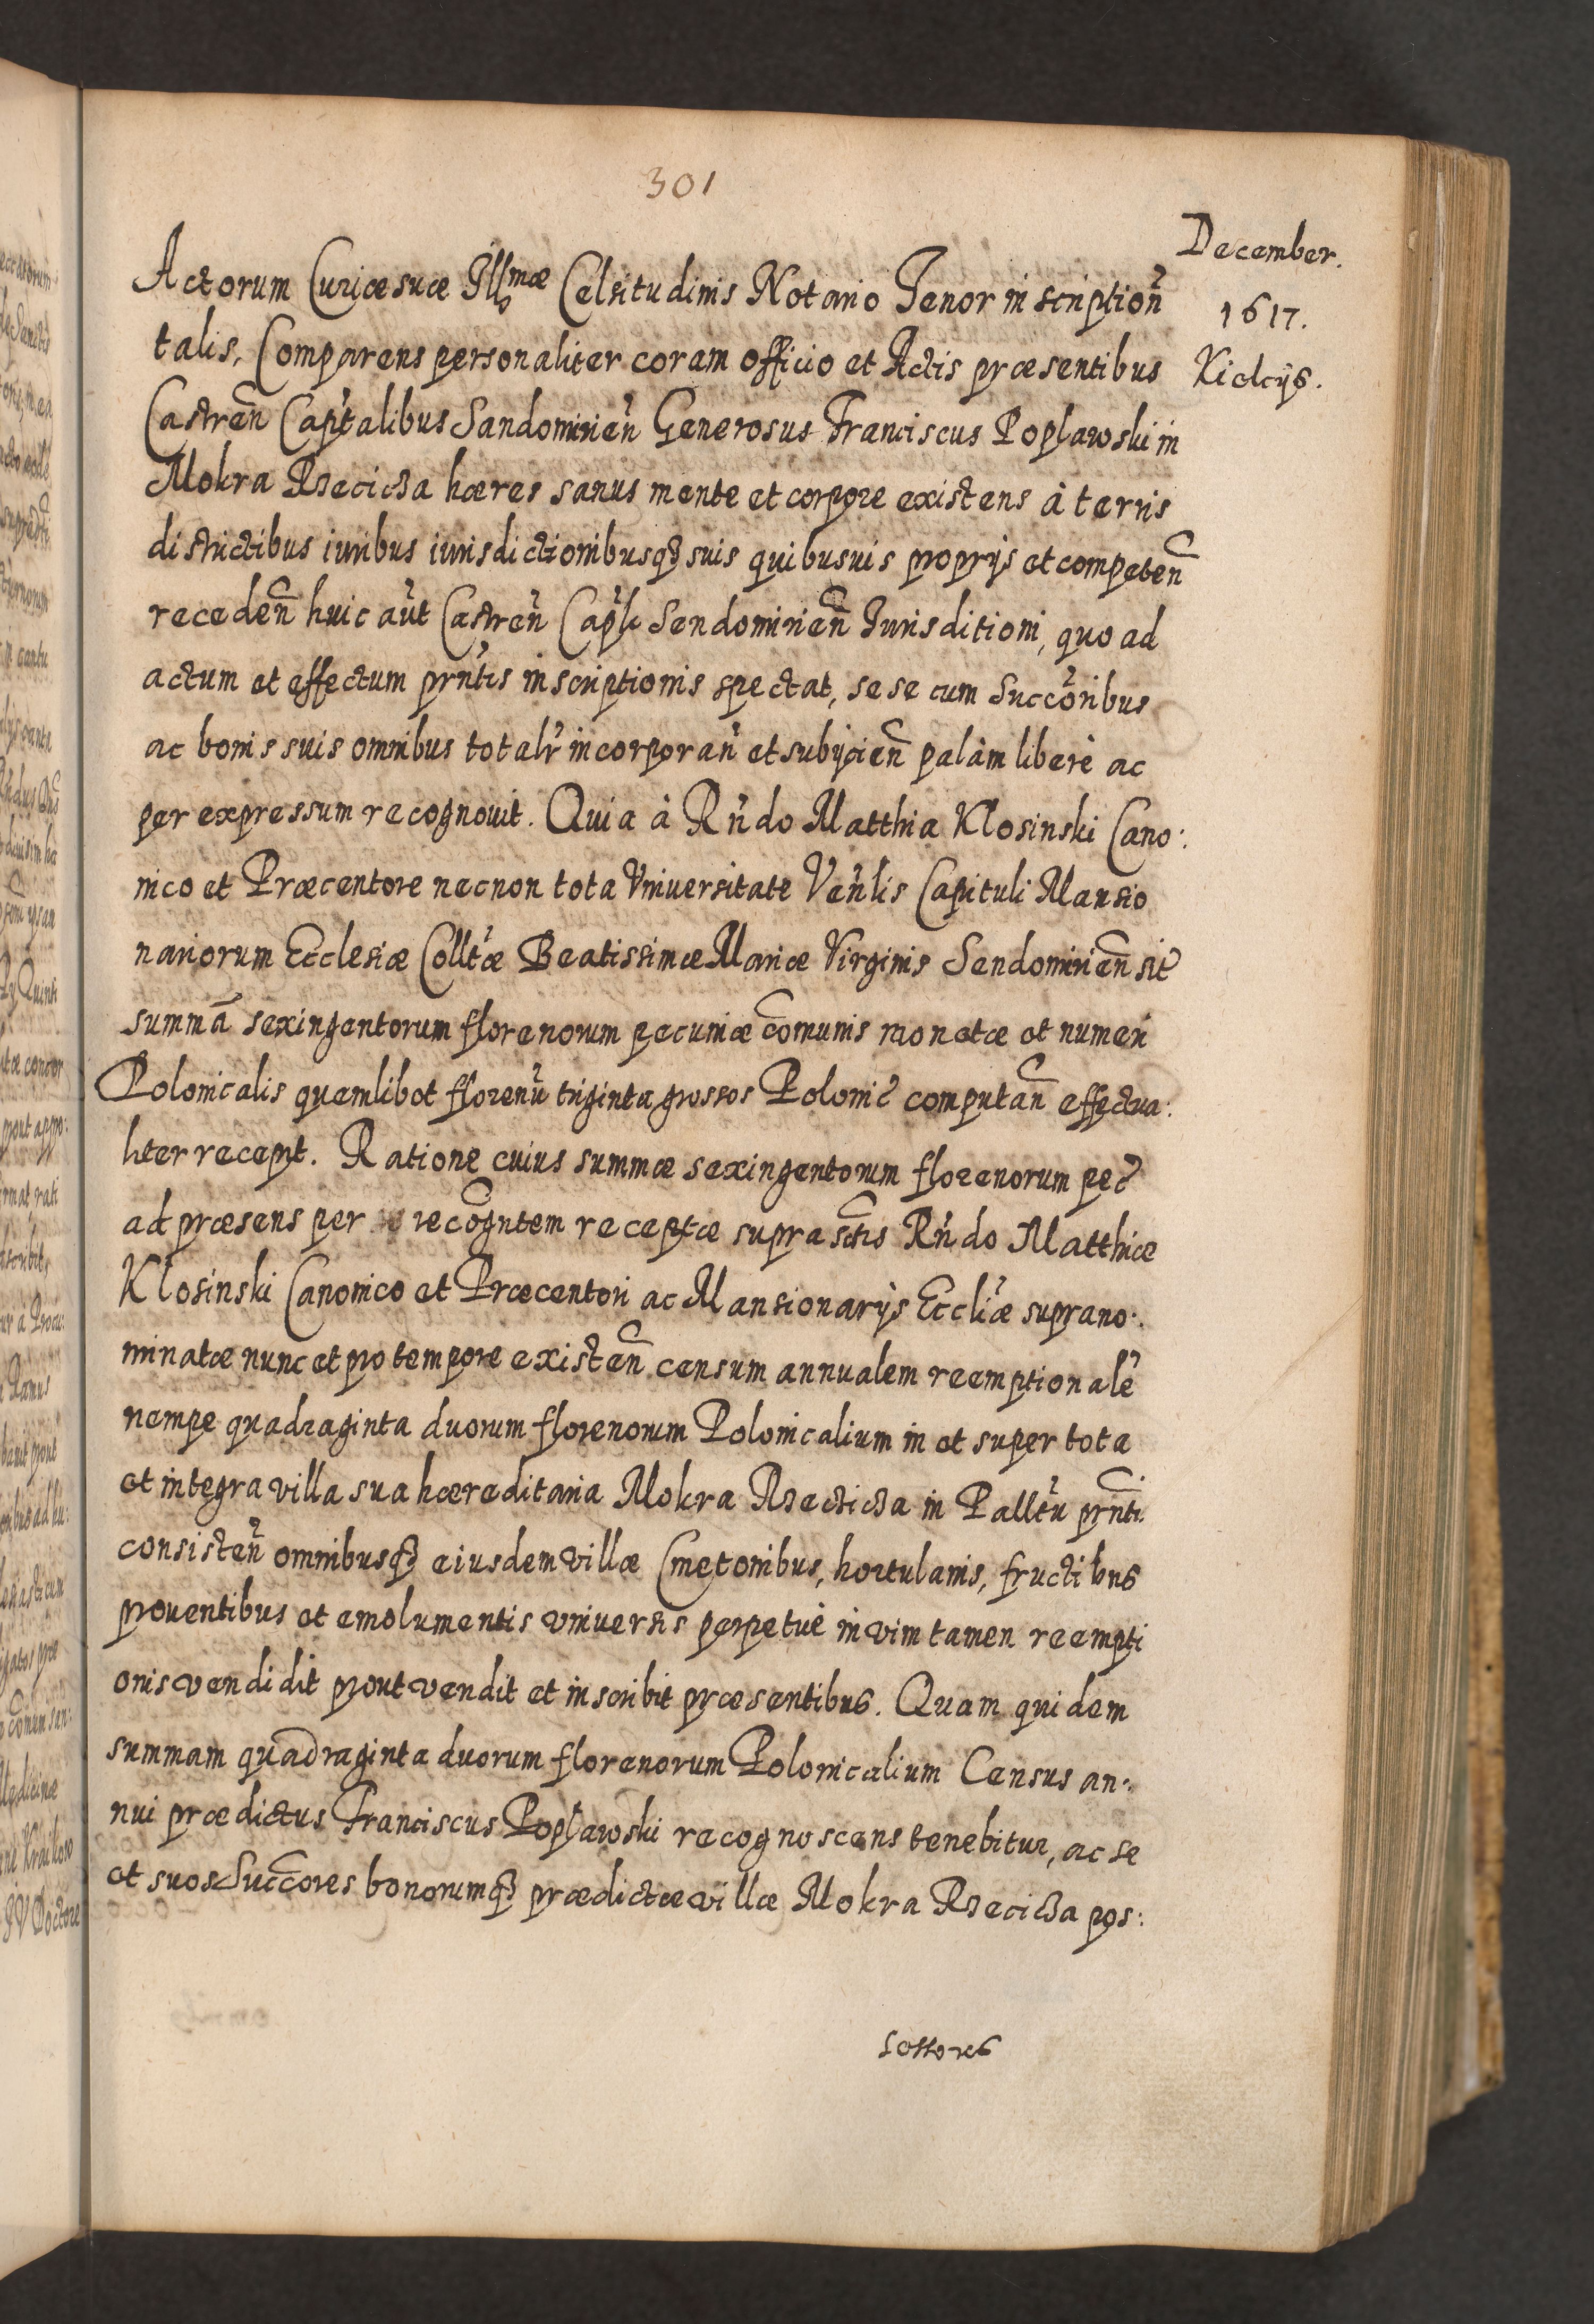 301
December.
1617.
Kielcijs.
Actorum Curiæ suæ Illmæ Celsitudinis Notario Tenor inscription̄
talis, Comparens personaliter coram officio et Actis præsentibus
Castren̄ Cap̄talibus Sandomirien̄ Generosus Franciscus Poplawski in
Mokra Rzecicza hæres sanus mente et corpore existens à terris
districtibus iuribus iurisdictionibusq3 suis quibusuis proprijs et competen̄
receden̄ huic aūt Castren̄ Cap̄li Sendomirien̄ Iurisditioni, quo ad
actum et effectum prn̄tis inscriptionis spectat, sese cum Succōribus
ac bonis suis omnibus totalr̄ incorporan̄ et subijcien̄ palàm liberè ac
per expressum recognouit. Quia à Rn̄do Matthia Klosinski Cano:
nico et Præcentore necnon tota Vniuersitate Ven̄lis Capituli Mansio
nariorum Ecclesiæ Collt̄æ Beatissimæ Mariæ Virginis Sendomirien̄ sit
summā sexingentorum florenorum pecuniæ cōmunis monetæ et numeri
Polonicalis quemlibet florenū triginta grossos Polonic̄ computan̄ effectua:
liter recepit. Ratione cuius summæ sexingentorum florenorum pec̄
ad præsens per recōgntem receptæ suprasctis Rn̄do Matthiæ
Klosinski Canonico et Præcentori ac Mansionarijs Eccliæ suprano:
minatæ nunc et pro tempore existen̄ censum annualem reemptionalē
nempe quadraginta duorum florenorum Polonicalium in et super tota
et integra villa sua hæreditaria Mokra Rzecticza in Palltū prn̄ti
consisten̄ omnibusq3 eiusdem villæ Cmetonibus, hortulanis, fructibus
prouentibus et emolumentis vniuersis perpetuè in vim tamen reempti
onis vendidit prout vendit et inscribit præsentibus. Quam quidem
summam quadraginta duorum florenorum Polonicalium Census an:
nui prædictus Franciscus Poplawski recognoscens tenebitur, ac se
et suos Succōres bonorumq3 prædictæ villæ Mokra Rzecicza pos:
sessores